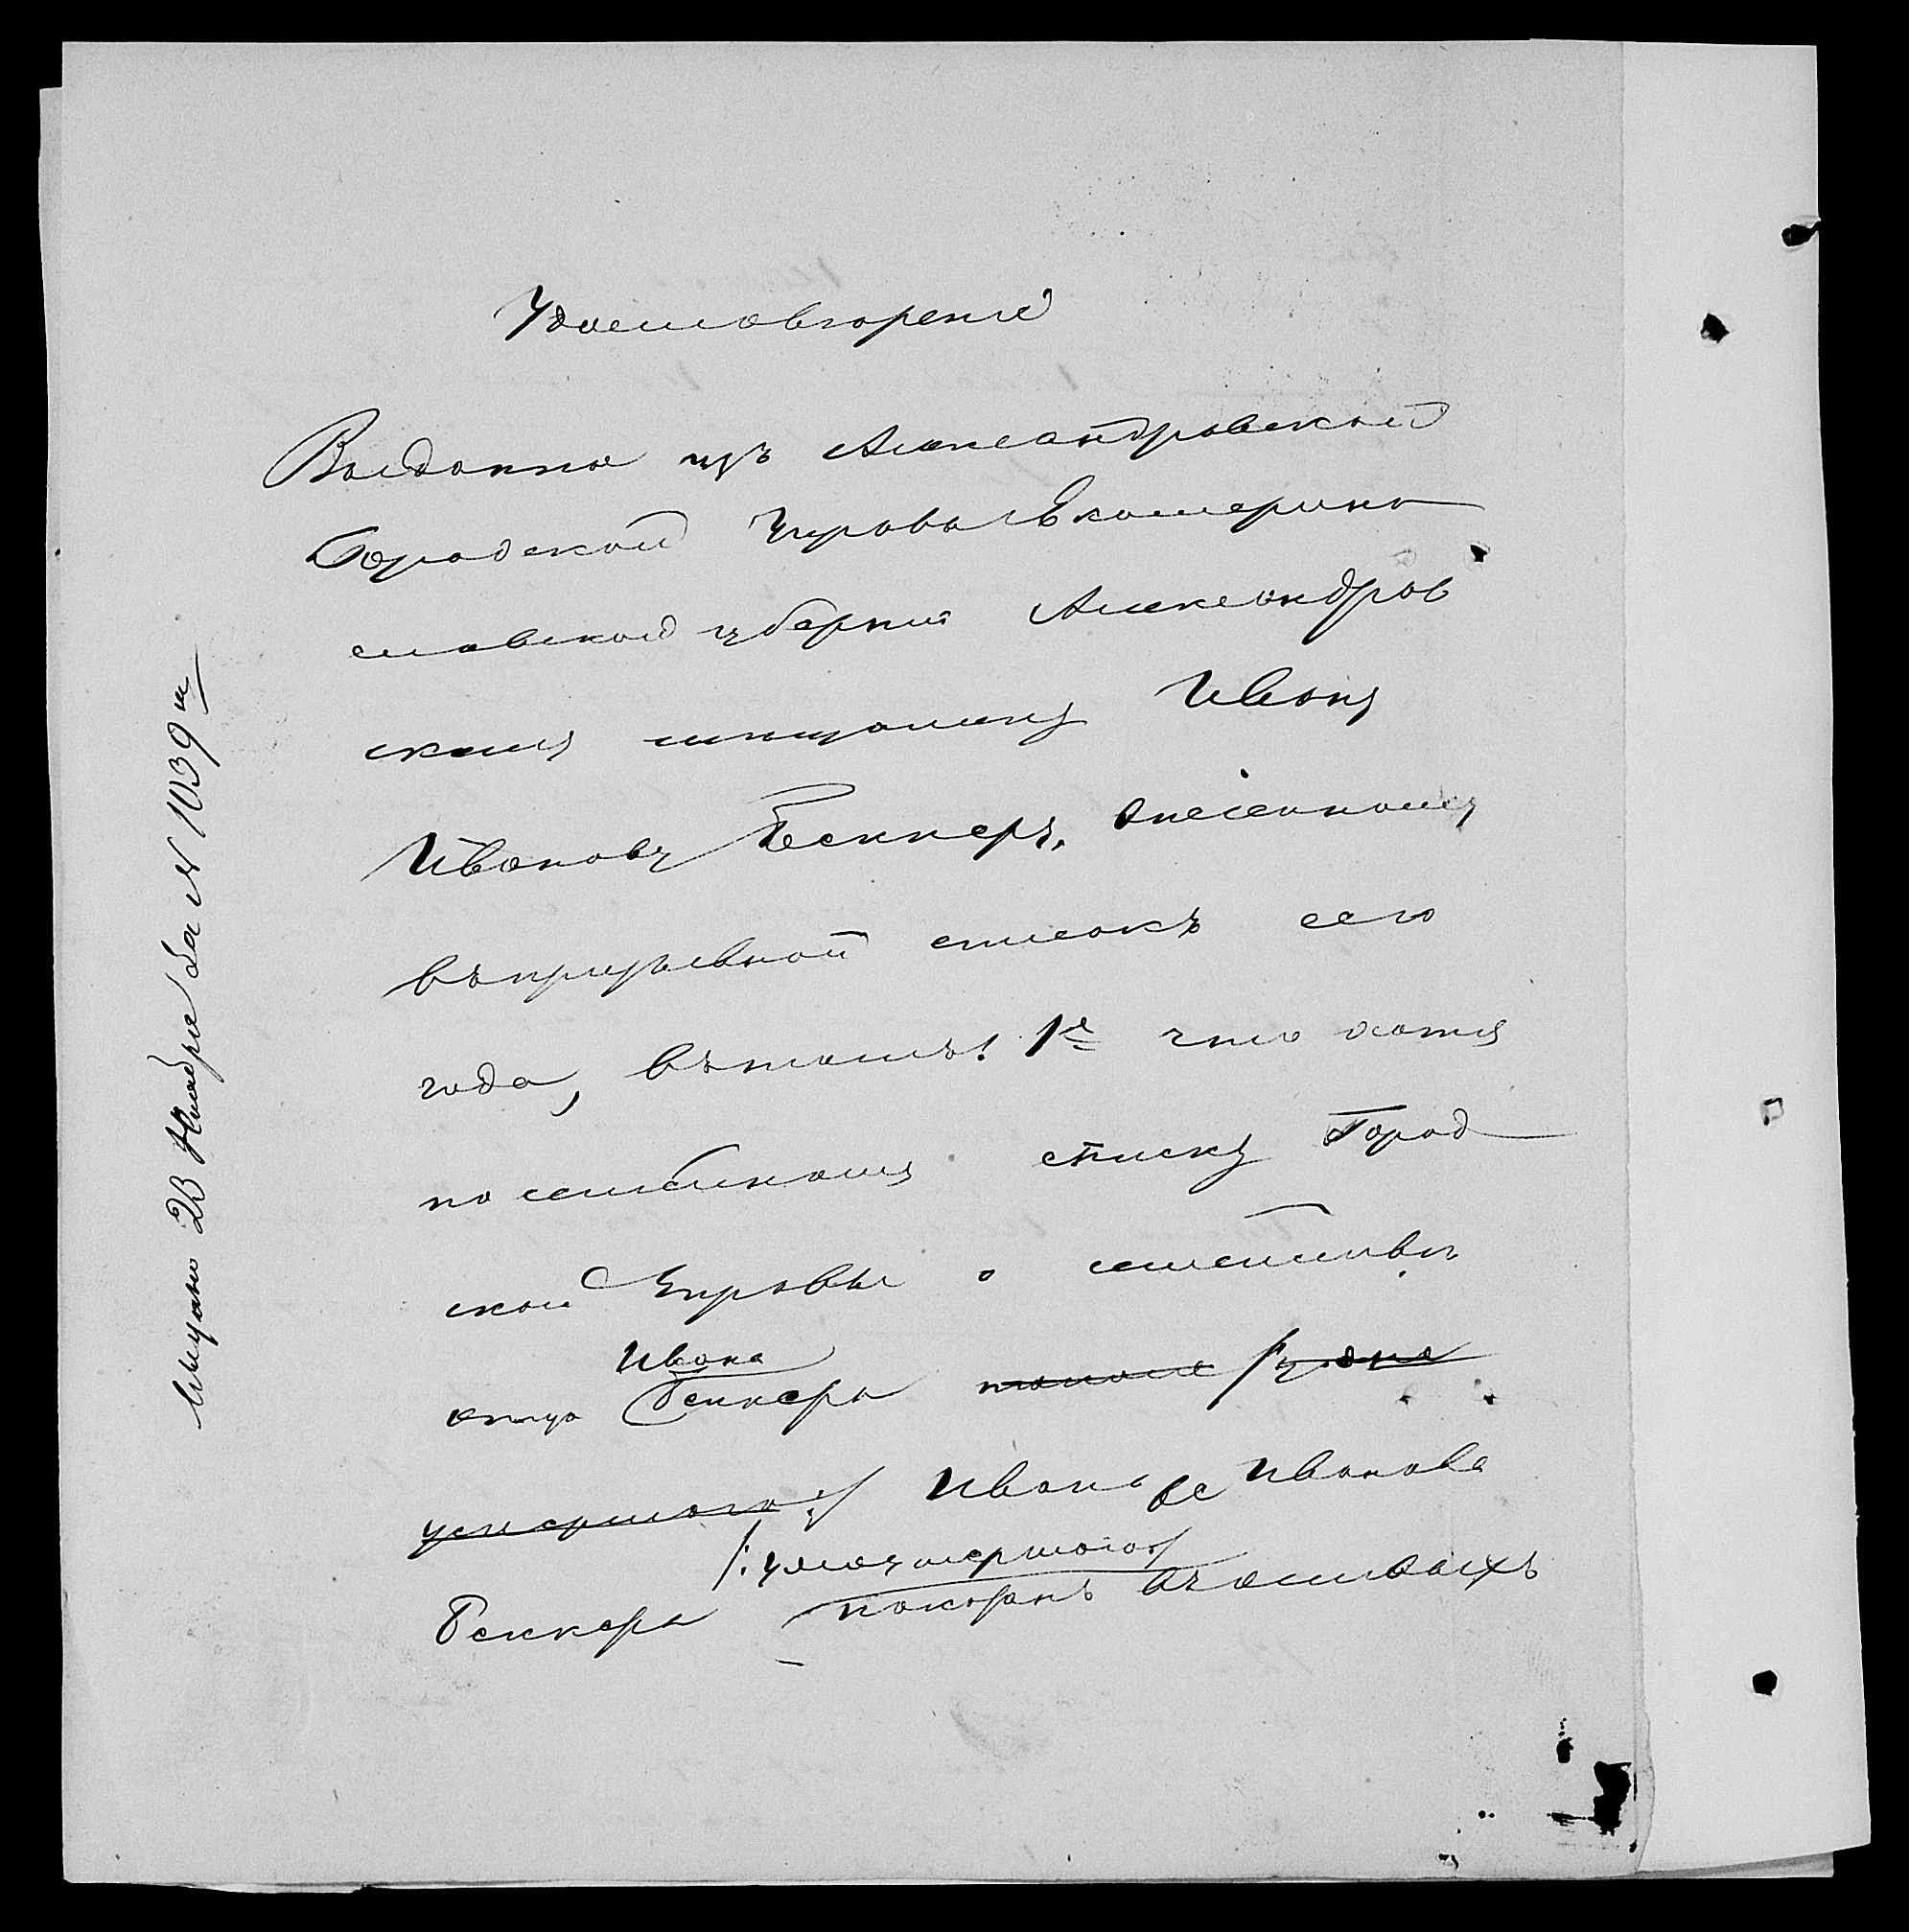 Удостоверение
Выдано изъ Александровской
Городской Управы Екатерино
славской губерніи Александров
скому мещанину Ивану
Иванову Беккеръ, внесенному
въ призывной списокъ сего
года, въ томъ: 1е что хотя
по семейному списку Город
ской Управы о семействе
Ивана
отца Беккеры
умершаго :/ Иванъ Иванова
/: умершаго :/
Беккеры показанъ
Мещано 23 Ноября За № 1039